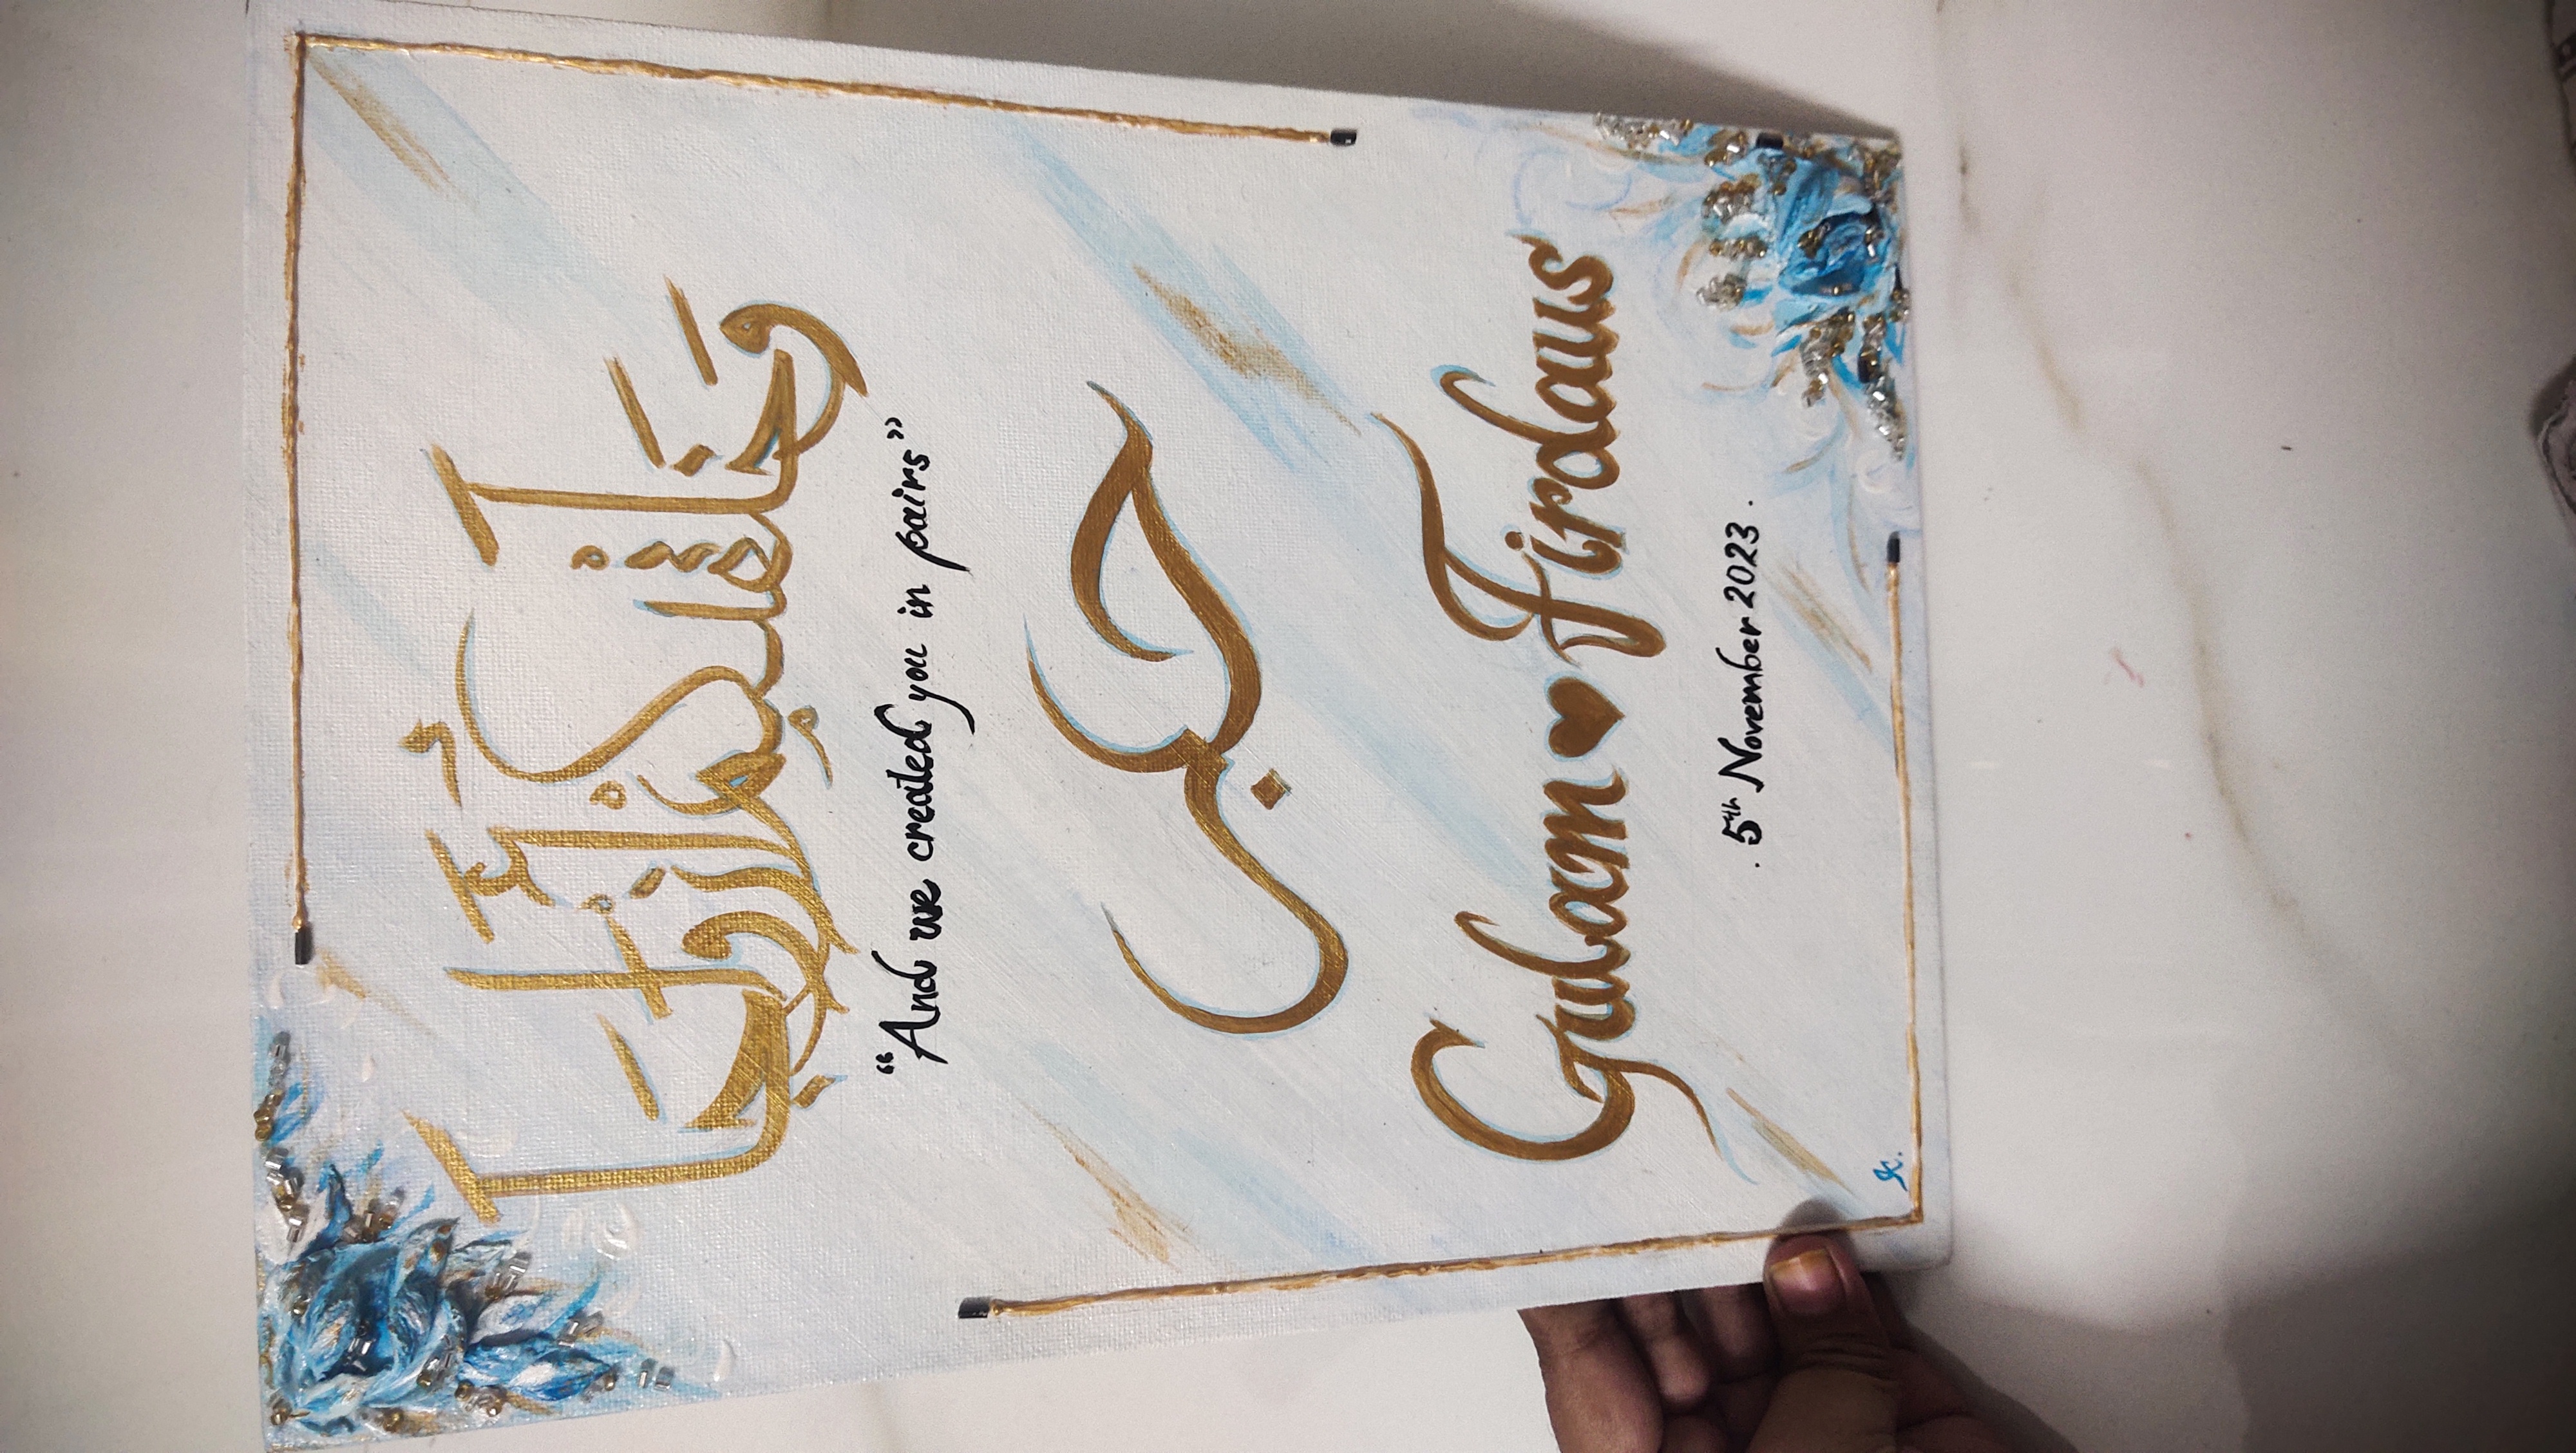 وَخَلَقْنَكُمْ أَزْوَاجًا
“And we created you in pairs”
حبر
Gulam ♥ Firdaus
. 5th November 2023 .